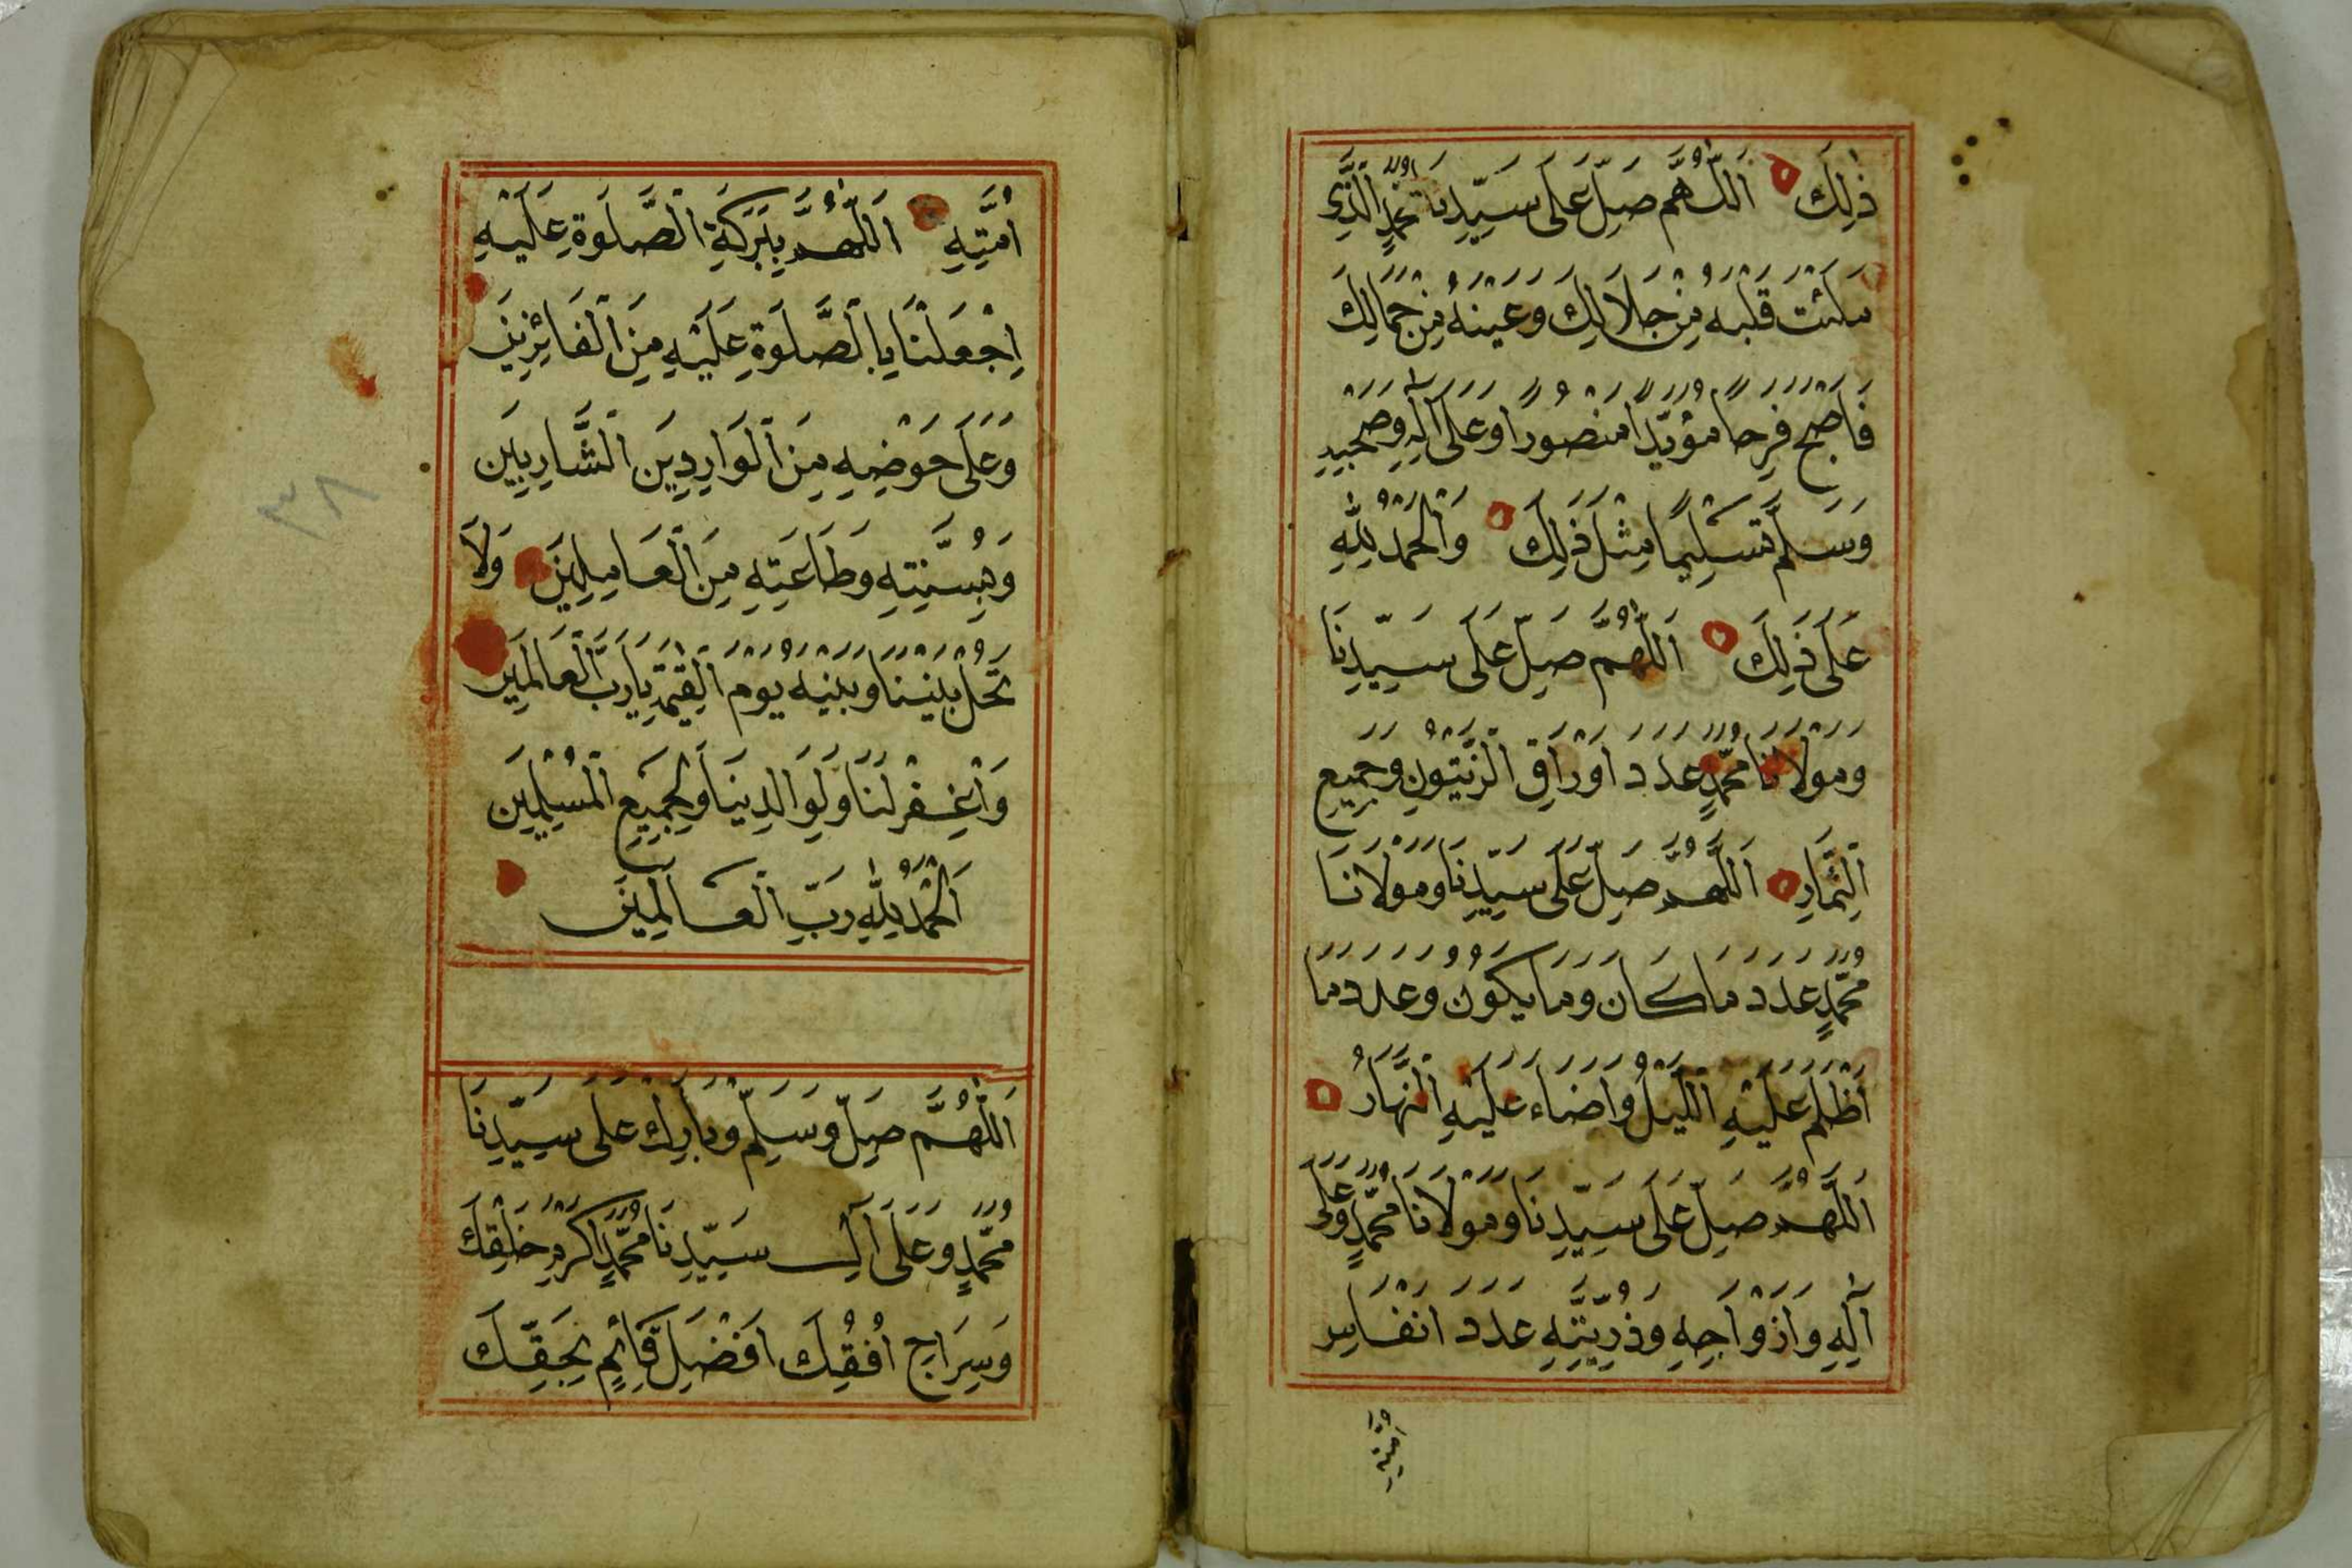 ذٰلِكَ اَللّٰهُمَّ صَلِّ عَلَى سَيِّدِنَا مُحَمَّدٍ الَّذِى
مَلَئْتَ قَلْبَهُ مِنْ جَلَالِكَ وَعَيْنَهُ مِنْ جَمَالِكَ
فَاَصْبَحَ فَرِحًا مُؤَيَّدًا مَنْصُورًا وَعَلَى اٰلِهِ وَصَحْبِهِ
وَسَلِّمْ تَسْلِيمًا مِثْلَ ذَلِكَ وَالْحَمْدُ لِلّٰهِ
عَلَى ذَلِكَ اَللّٰهُمَّ صَلِّ عَلَى سَيِّدِنَا
وَمَوْلَانَا مُحَمَّدٍ عَدَدَ اَوْرَاقِ الزَّيْتُونِ وَجَمِيعِ
الثِّمَارِ اَللَّهُمَّ صَلِّ عَلَى سَيِّدِنَا وَمَوْلَانَا
مُحَمَّدٍ عَدَدَ مَا كَانَ وَمَا يَكُونُ وَعَدَدَ مَا
اَظْلَمَ عَلَيْهِ الَّيْلُ وَاَضَاءَ عَلَيْهِ النَّهَارُ
اَللَّهُمَّ صَلِّ عَلَى سَيِّدِنَا وَمَوْلَانَا مُحَمَّدٍ وَعَلَى
اٰلِهِ وَاَزْوَاجِهِ وَذُرِّيَّتِهِ عَدَدَ اَنْفَاسِ
اُمَّتِهِ
اُمَّتِهِ اَللّٰهُمَّ بِبَرَكَةِ الصَّلَوةِ عَلَيْهِ
اِجْعَلْنَا بِالصَّلَوةِ عَلَيْهِ مِنَ الْفَائِزِينَ
وَعَلَى حَوْضِهِ مِنَ الْوَارِدِينَ الشَّارِبِينَ
وَبِسُنَّتِهِ وَطَاعَتِهِ مِنَ الْعَامِلِينَ وَلَا
تَحُلْ بَيْنَنَا وَبَيْنَهُ يَوْمَ الْقِيٰمَةِ يَا رَبَّ الْعَالَمِينَ
وَاغْفِرْ لَنَا وَلِوَالِدِينَا وَلِجَمِيعِ الْمُسْلِمِينَ
اَلْحَمْدُ لِلّٰهِ رَبِّ الْعَالَمِينَ
اَللّٰهُمَّ صَلِّ وَسَلِّمْ وَبَارِكْ عَلَى سَيِّدِنَا
مُحَمَّدٍ وَعَلَى اٰلِ سَيِّدِنَا مُحَمَّدٍ اَكْرَمِ خَلْقِكَ
وَسِرَاجِ اُفُقِكَ اَفْضَلِ قَائِمٍ بِحَقِّكَ
٣٨